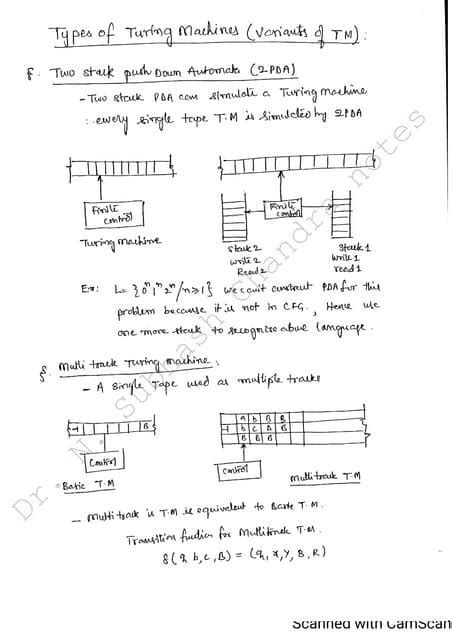 Types of Turing Machines (Variants of TM):
§. Two stack push Down Automata (2PDA)
- Two stack PDA can simulate a Turing machine
∴ every single tape T.M is simulated by 2PDA
Finite control
Turing machine
Finite control
Stack 2
write 2
Read 2
Stack 1
write 1
read 1
Ex: L = {0ⁿ1ⁿ2ⁿ/n≥1} we can't construct PDA for this
problem because it is not in CFG, Hence use
one more stack to recognize above language.
§. Multi track Turing machine:
- A single Tape used as multiple tracks
B
Control
Basic T.M
a b B B
b c A B
B B B
Control
multi track T.M
- Multi track is T.M is equivalent to Basic T.M.
Transition function for Multitrack T.M.
δ(q, b, c, B) = (q, x, y, B, R)
Dr. N. Subhash Chandra notes
Scanned with CamScan